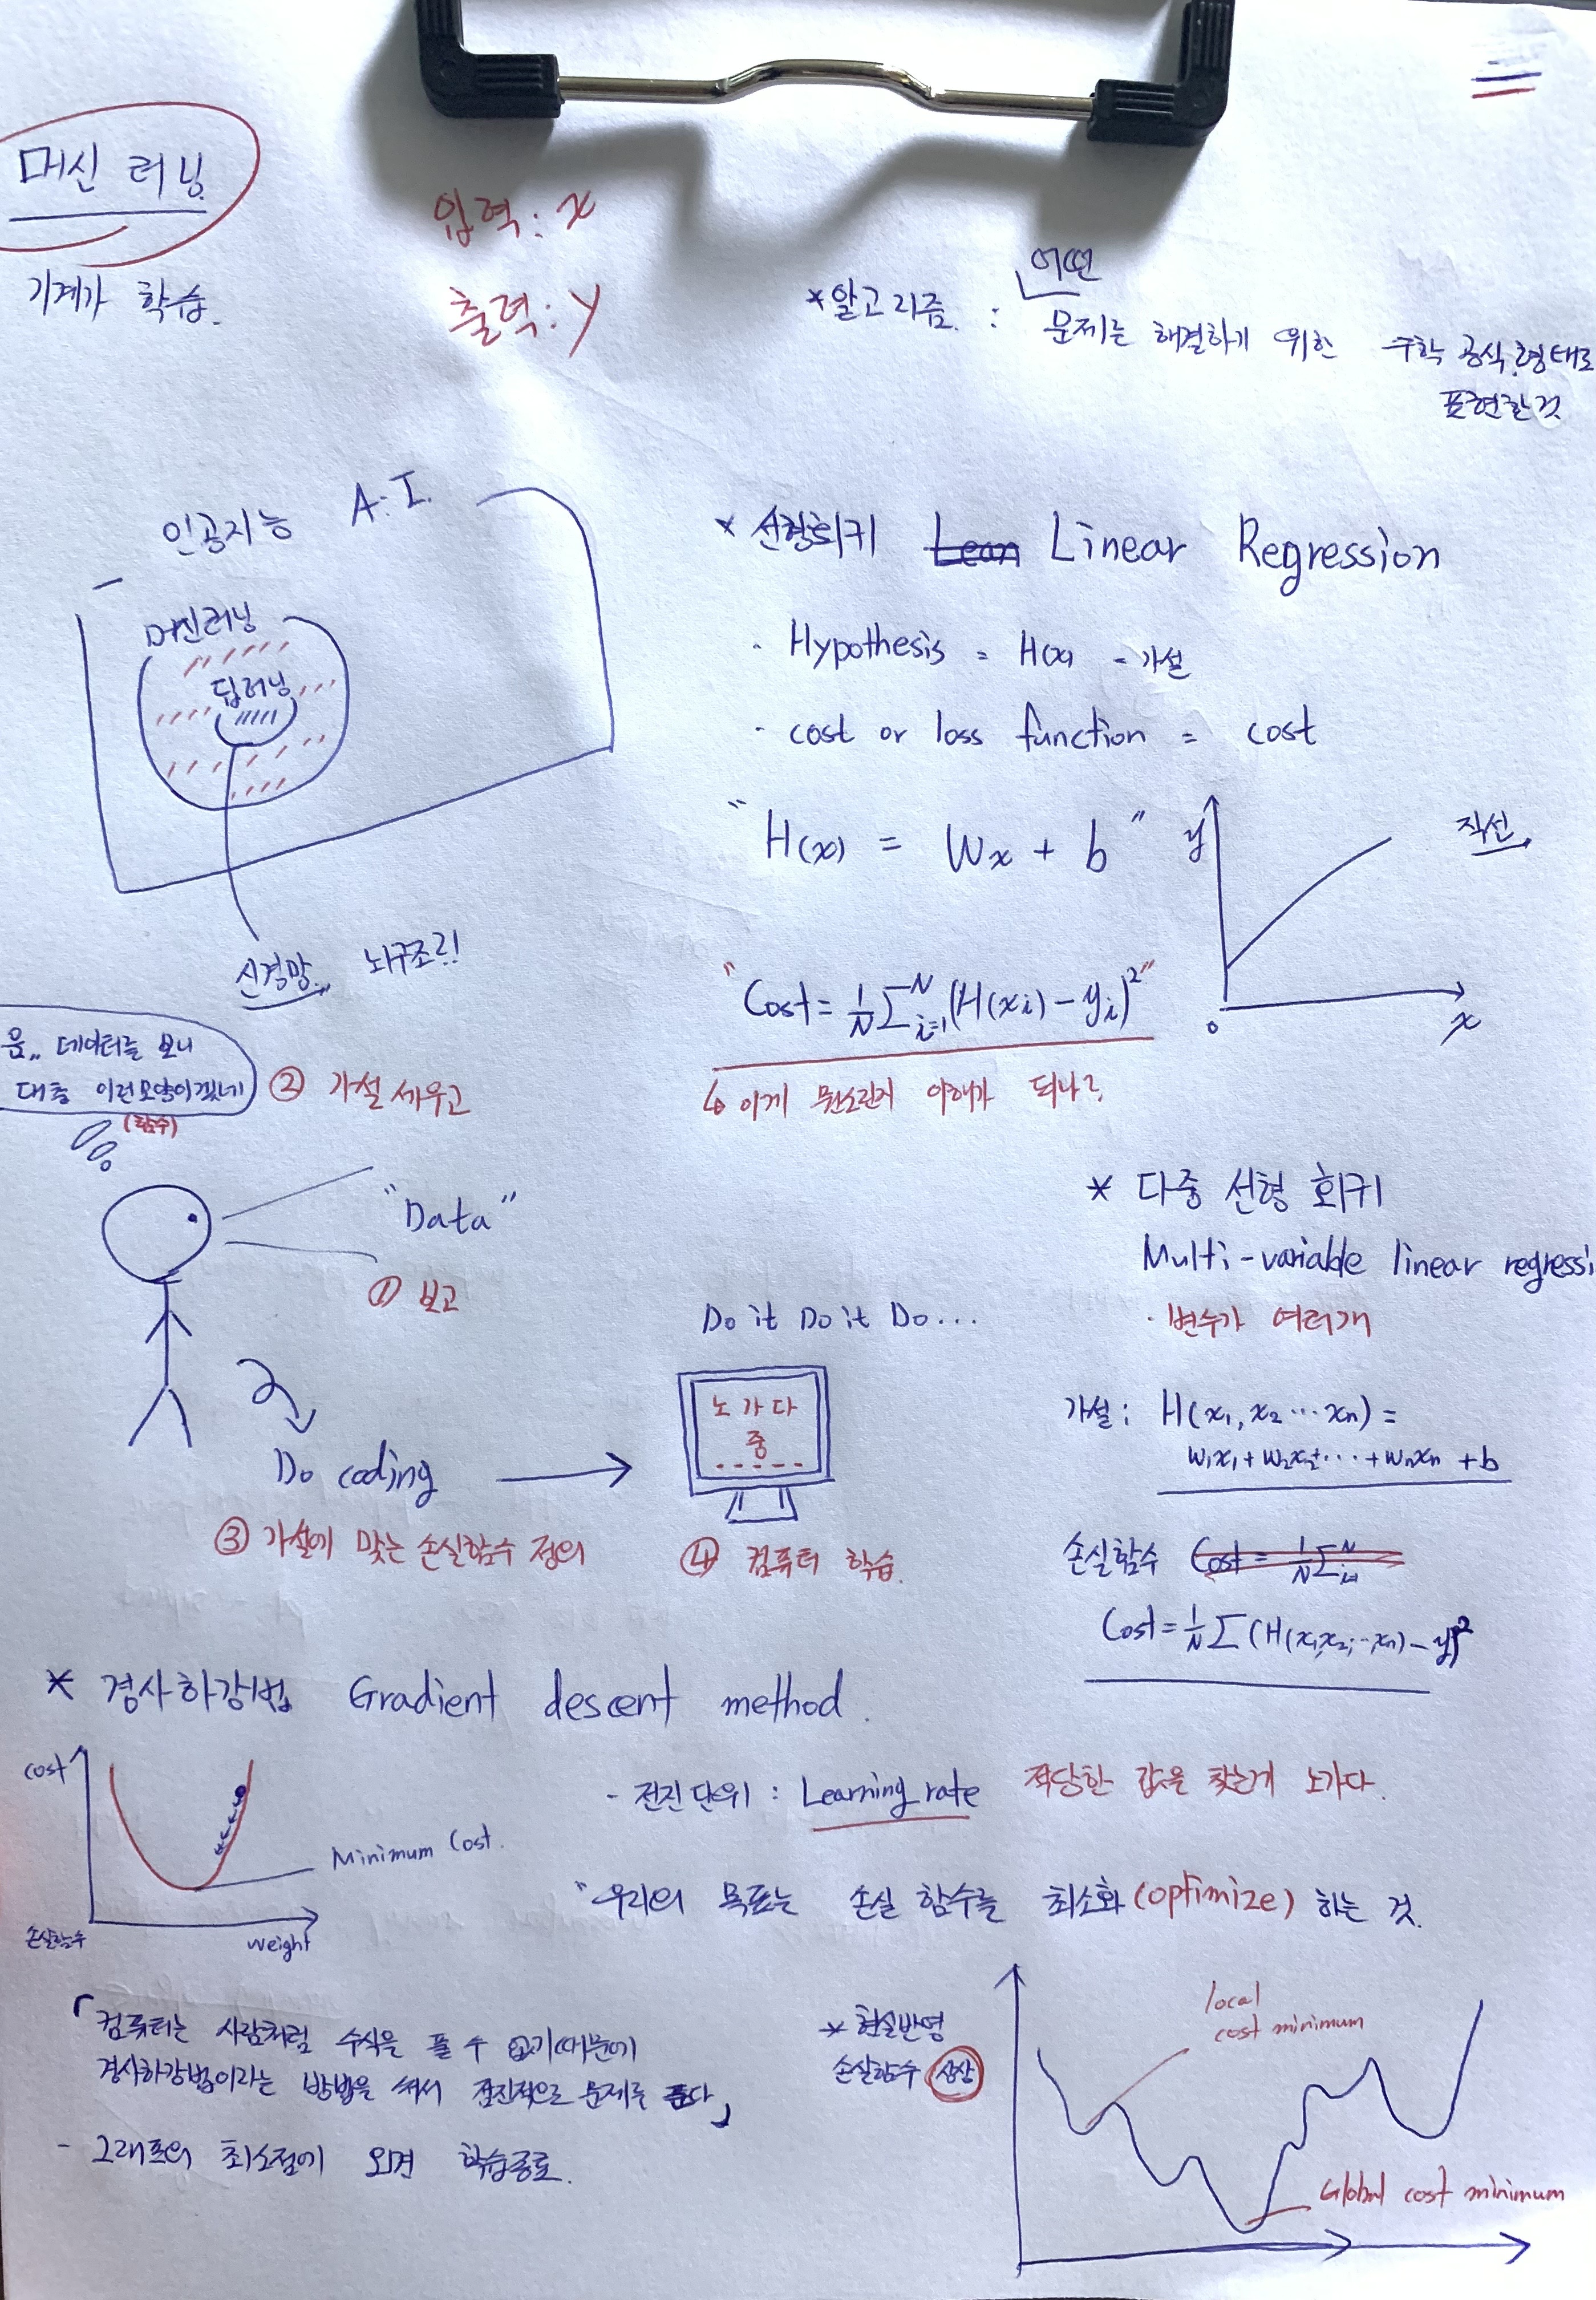 머신 러닝
기계가 학습.
입력: x
출력: y
어떤
*알고리즘. : 문제를 해결하기 위한 수학 공식.형태로
표현한것
인공지능 A.I.
머신러닝
딥러닝
신경망.. 뇌구조?!
* 선형회귀 Lean Linear Regression
- Hypothesis = H(x) - 가설
- cost or loss function = cost
" H(x) = Wx + b "
y
직선
0
x
"Cost = 1/N ∑ᵢ₌₁ᴺ (H(xᵢ) - yᵢ)²"
↳ 이게 뭔소린지 이해가 되나?
음.. 데이터를 보니
대충 이런모양이겠네
(함수)
② 가설 세우고
"Data"
① 보고
Do coding
③ 가설에 맞는 손실함수 정의
Do it Do it Do...
노가다
중
④ 컴퓨터 학습.
* 다중 선형 회귀
Multi-variable linear regressi
· 변수가 여러개
가설: H(x₁, x₂ ... xn) =
w₁x₁ + w₂x₂+ ... + wnxn + b
손실함수 Cost = 1/N ∑ᴺ
Cost = 1/N ∑ (H(x₁,x₂,...xn) - y)²
* 경사하강법 Gradient descent method.
cost
Minimum Cost.
손실함수
Weight
- 전진단위 : Learning rate 적당한 값을 찾는게 노가다.
"우리의 목표는 손실 함수를 최소화(optimize) 하는 것.
「컴퓨터는 사람처럼 수식을 풀 수 없기때문에
경사하강법이라는 방법을 써서 점진적으로 문제를 푼다」
- 그래프의 최소점에 오면 학습종료.
* 현실반영
손실함수 상상
local
cost minimum
Global cost minimum